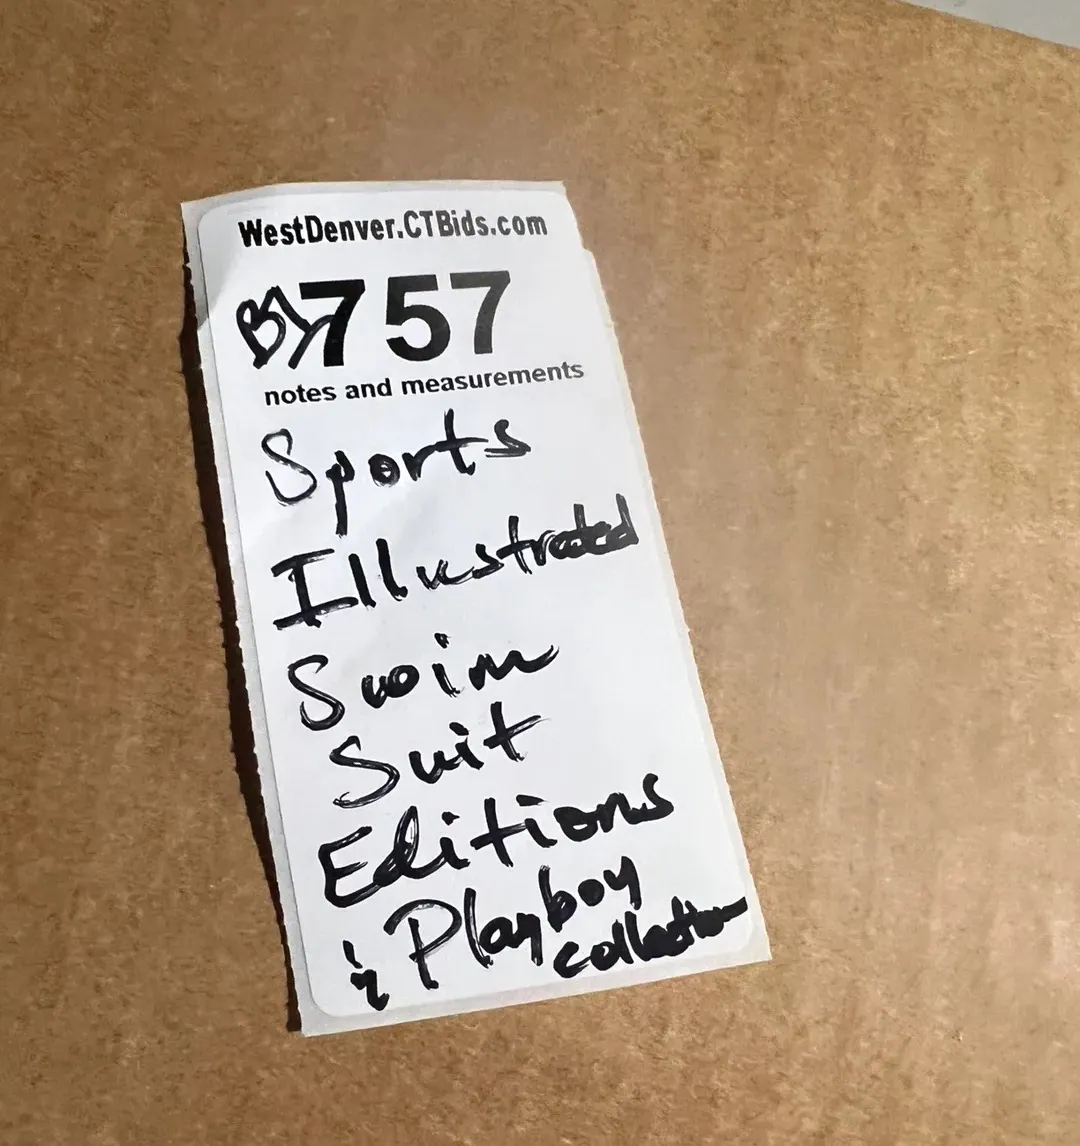 WestDenver.CTBids.com
BY757
notes and measurements
Sports
Illustrated
Swim
Suit
Editions
& Playboy
collection